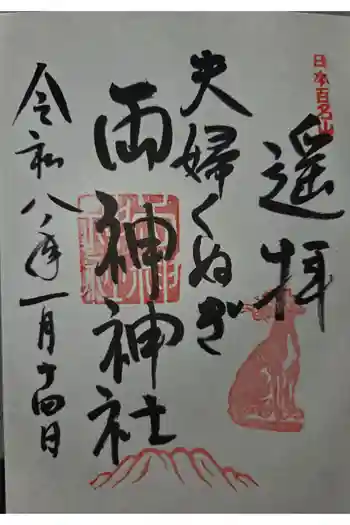 日本百名山
遥拝
夫婦くぬぎ
両神神社
令和八年一月十四日